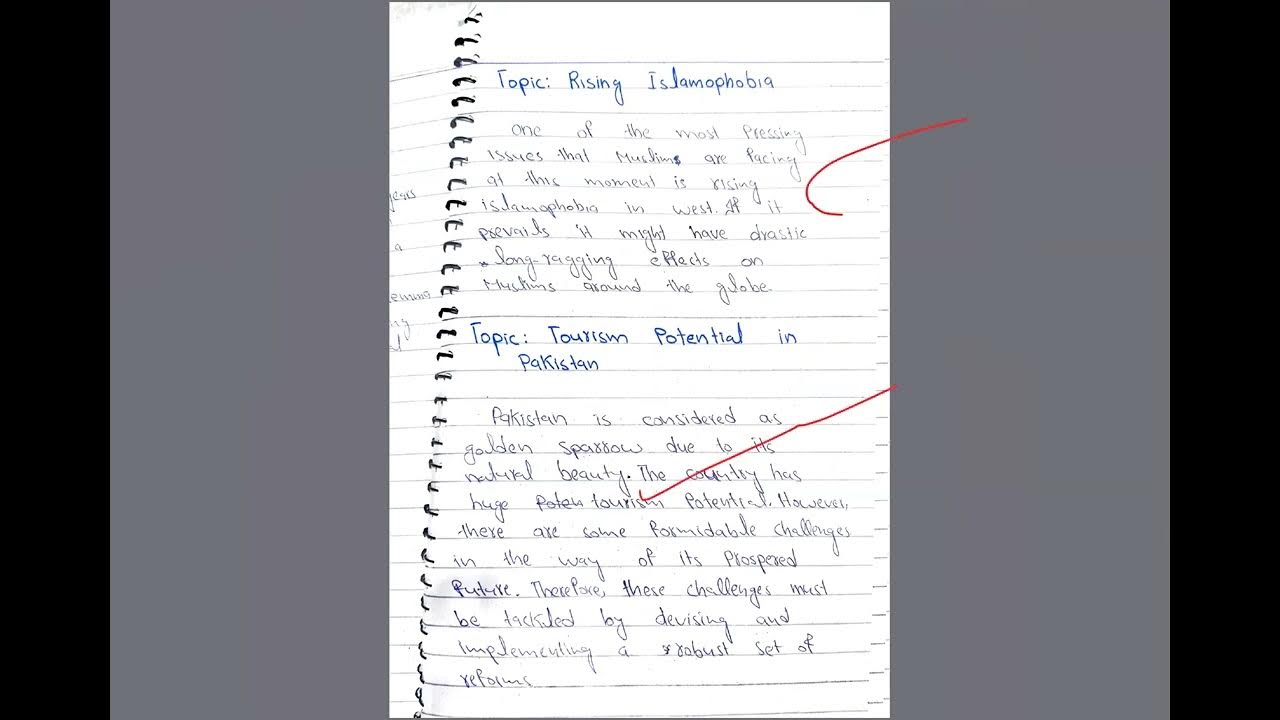 Topic: Rising Islamophobia
One of the most Pressing
issues that Muslims are facing
at this moment is rising
islamophobia in west. If it
prevails it might have drastic
long-ragging effects on
Muslims around the globe.
Topic: Tourism Potential in
Pakistan
Pakistan is considered as
golden sparrow due to its
natural beauty. The country has
huge Poten tourism Potential. However,
there are some formidable challenges
in the way of it Prospered
future. Therefore, these challenges must
be tackled by devising and
implementing a robust set of
reforms.
years
a